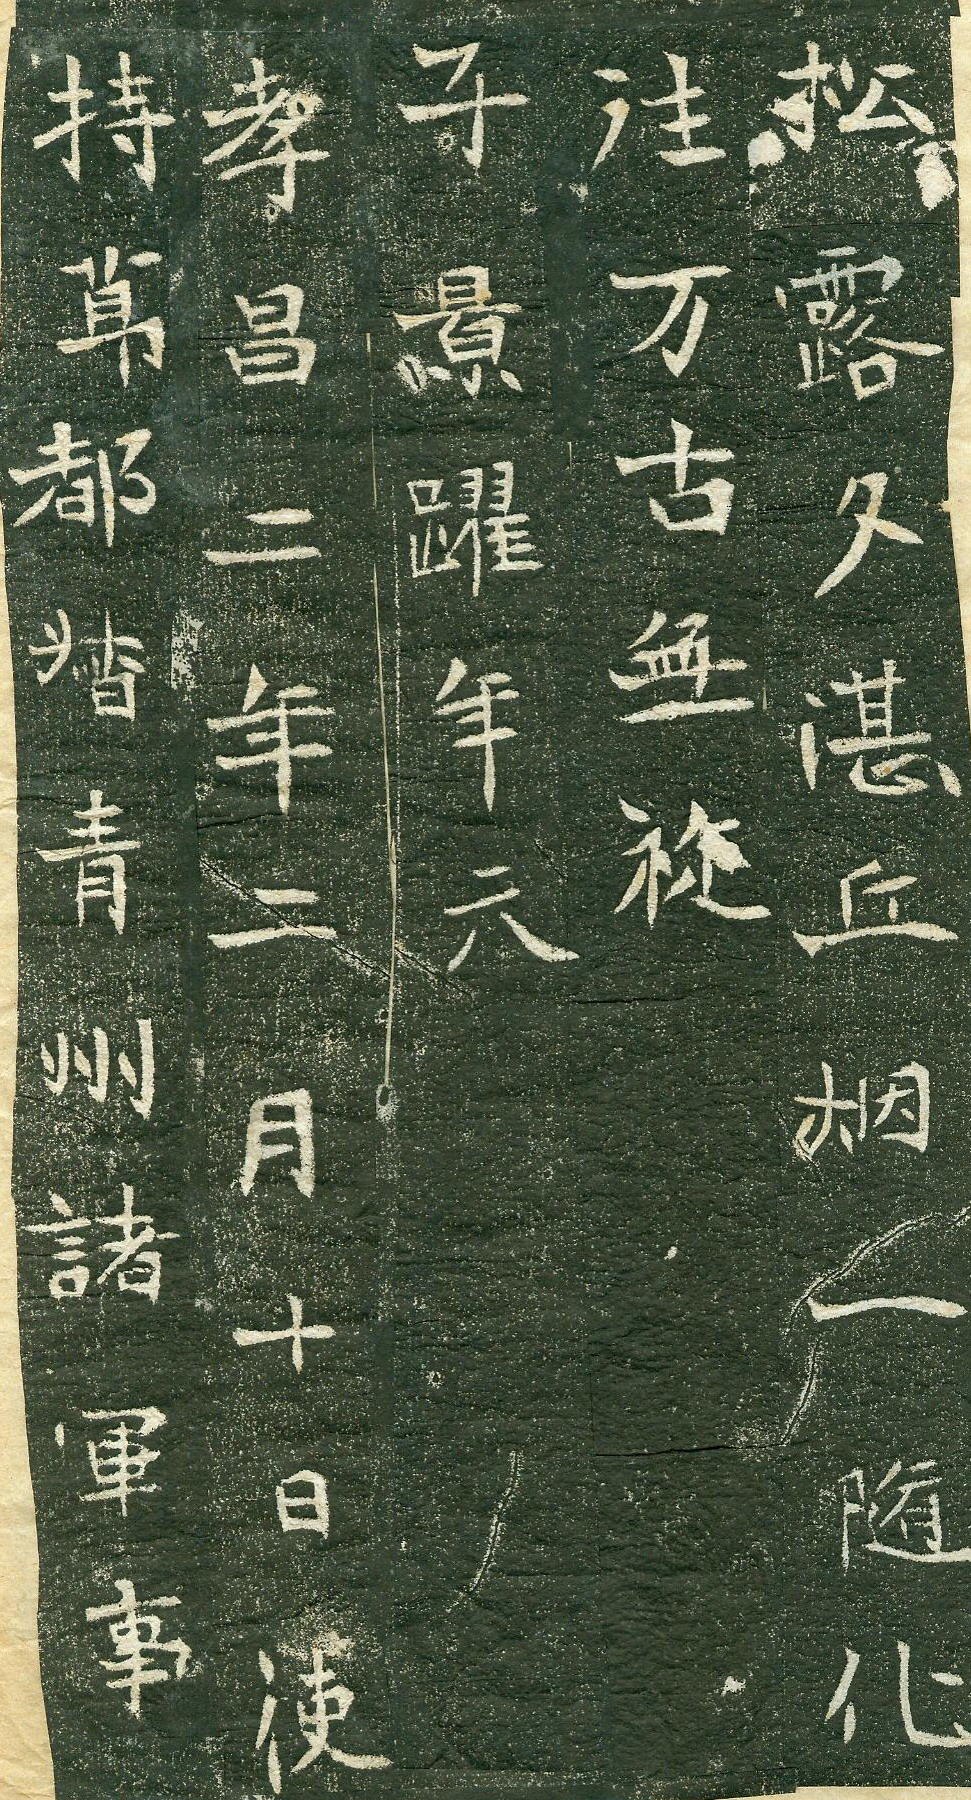 松露夕湛丘烟一隨化
往万古無從
子景躍年六
孝昌二年二月十日使
持節都督青州諸軍事